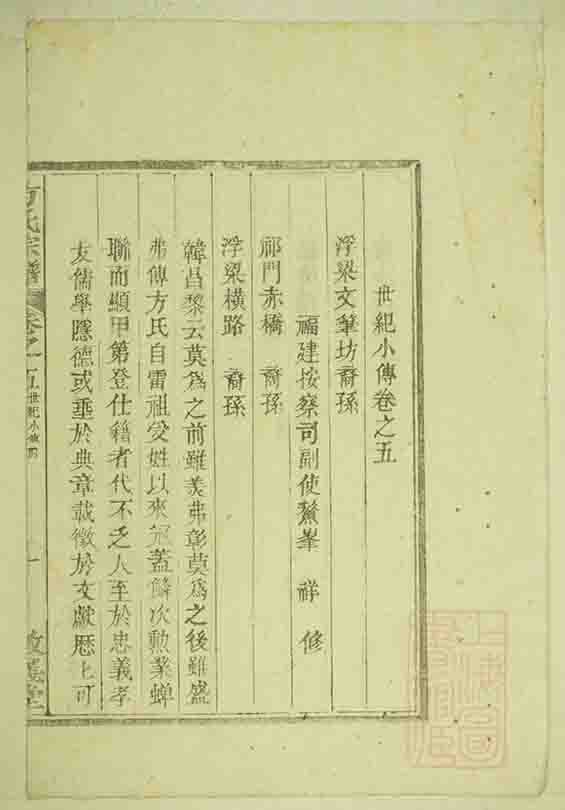 世紀小傳卷之五
浮梁文筆坊裔孫
福建按察司副使鰲峯 祥 修
祁門赤橋 裔孫
浮梁橫路 裔孫
韓昌黎云莫爲之前雖美弗彰莫爲之後雖盛
弗傳方氏自雷祖受姓以來冠蓋鱗次勲業蟬
聮而顯甲第登仕籍者代不乏人至於忠義孝
友儒學隱德或垂於典章載徵於文獻歷上可
方氏宗譜 卷之五 世紀小傳 一